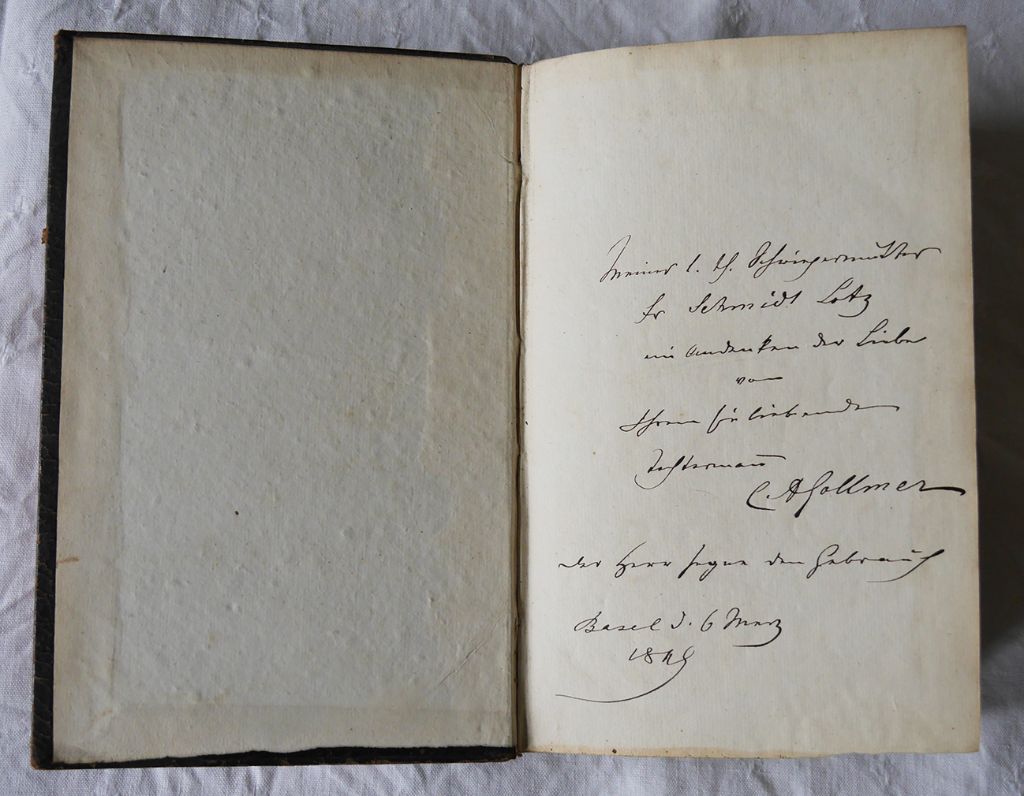 Meiner l. th. Schwiegermutter
Fr Schmidt Lotz
ein Andenken der Liebe
von
Ihrem sie liebenden
Tochtermann
C.
Der Herr segne den Gebrauch
Basel d. 6 Merz